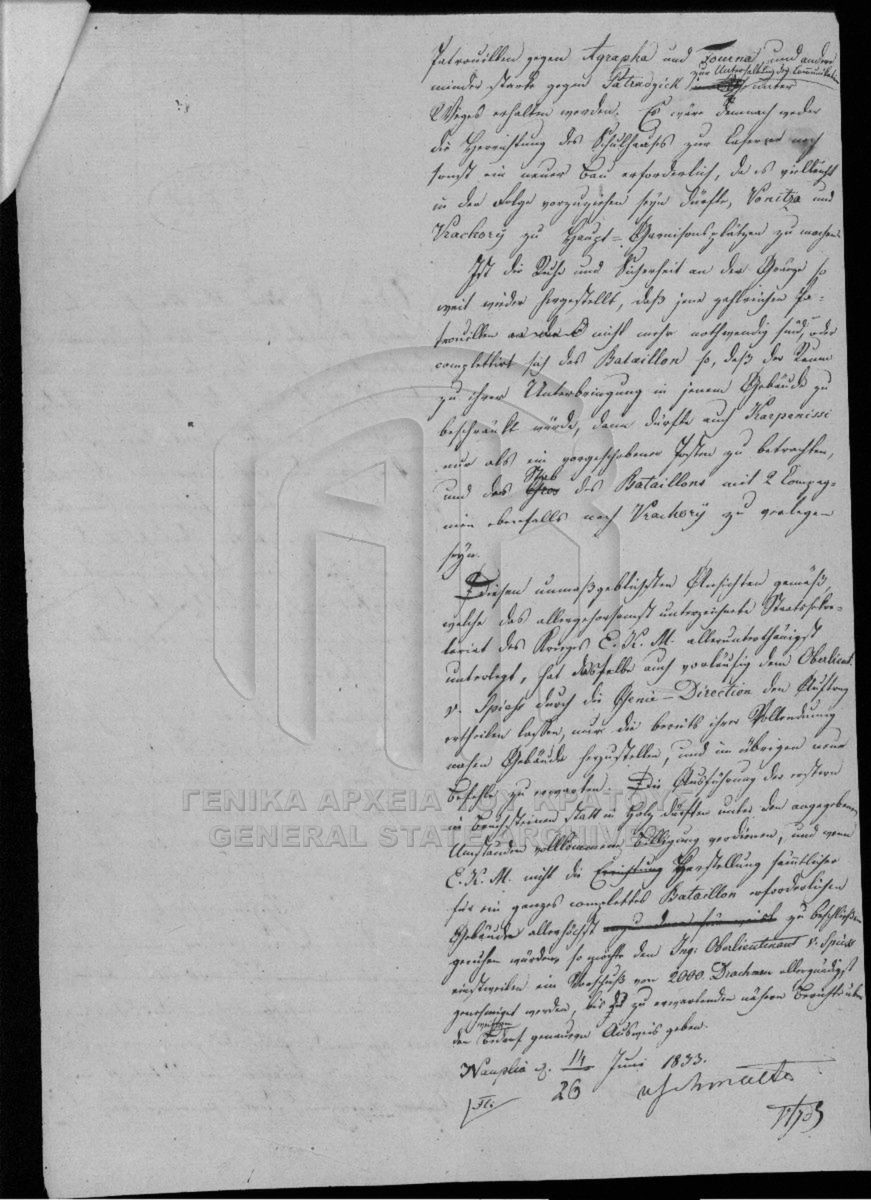 Patrouillen gegen Agrapha und Fourna, und andere
zur Unterhaltung der Communikation
minder starke gegen Patradgick unter
Weges erhalten werden. Es wäre demnach weder
die Herrichtung des Schulhauses zur Caserne noch
sonst ein neuer Bau erforderlich, da es vielleicht
in der Folge vorzuziehen seyn dürfte, Vonitza und
Vrachorÿ zu Haupt-Garnisonsplätzen zu machen.
Ist die Ruhe und Sicherheit an der Gränze so
weit wieder hergestellt, daß jene zahlreichen Pa-
trouillen nicht mehr nothwendig sind, oder
complettirt sich das Bataillon so, daß der Raum
zu ihrer Unterbringung in jenem Gebäude zu
beschränkt würde, dann dürfte auch Karpenissi
nur als ein vorgeschobener Posten zu betrachten,
Stab
und das Gros des Bataillons mit 2 Compag-
nien ebenfalls nach Vrachorÿ zu verlegen
seyn.
Diesen unmaßgeblichsten Ansichten gemäß,
welche das allergehorsamst unterzeichnete Staatssekre-
tariat des Krieges E. K. M. allerunterthänigst
unterlegt, hat dasselbe auch vorläufig dem Oberlieut.
v. Spiess durch die Genie-Direction den Auftrag
ertheilen lassen, nur die bereits ihrer Vollendung
nahen Gebäude herzustellen, und im übrigen neue
Befehle zu erwarten. Die Ausführung der erstern
in Bruchsteinen statt in Holz dürften unter den angegebenen
Umständen vollkommene Billigung verdienen, und wenn
E. K. M. nicht die Herstellung sämmtlicher
für ein ganzes complettes Bataillon erforderlichen
Gebäude allerhöchst zu beschließen
geruhen würden, so möchte dem Ing: Oberlieutenant v. Spiess
einstweilen ein Vorschuß von 2000 Drachmen allergnädigst
genehmigt werden, bis die zu erwartenden nähern Berichte über
den Bedarf genauern Ausweis geben.
Nauplia d. 14/26 Juni 1833.
v Schmaltz